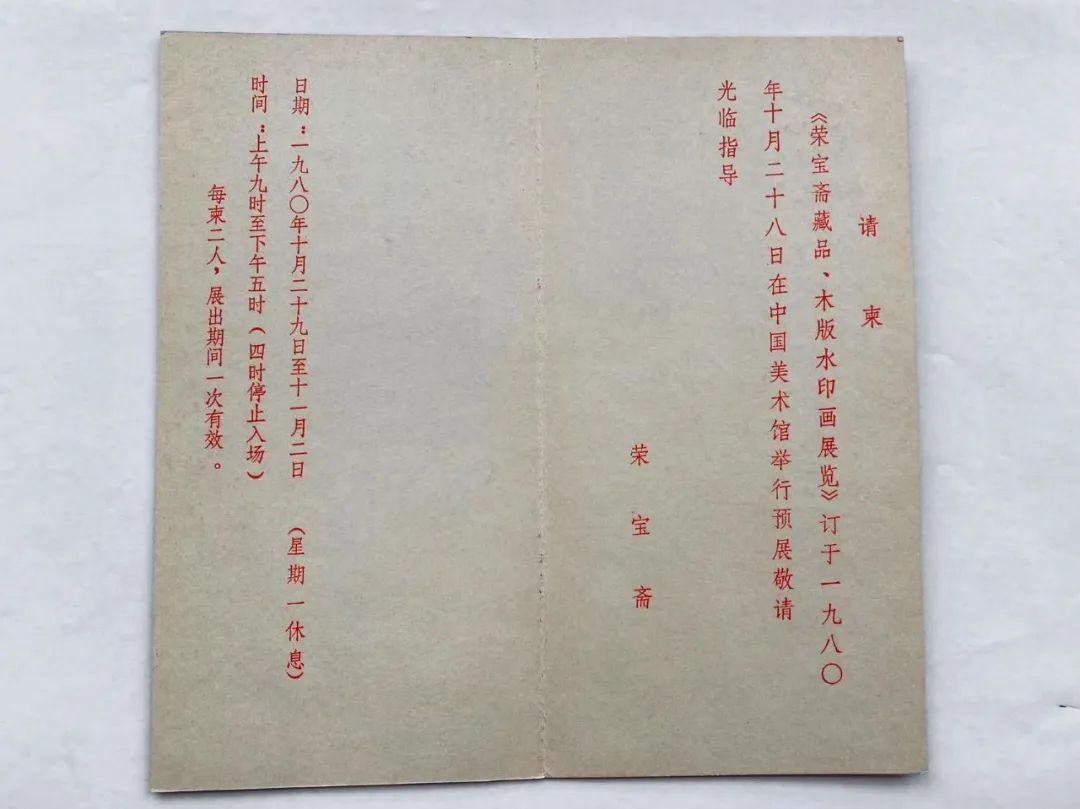 请柬
《荣宝斋藏品、木版水印画展览》订于一九八〇
年十月二十八日在中国美术馆举行预展敬请
光临指导
荣宝斋
日期：一九八〇年十月二十九日至十一月二日（星期一休息）
时间：上午九时至下午五时（四时停止入场）
每柬二人，展出期间一次有效。